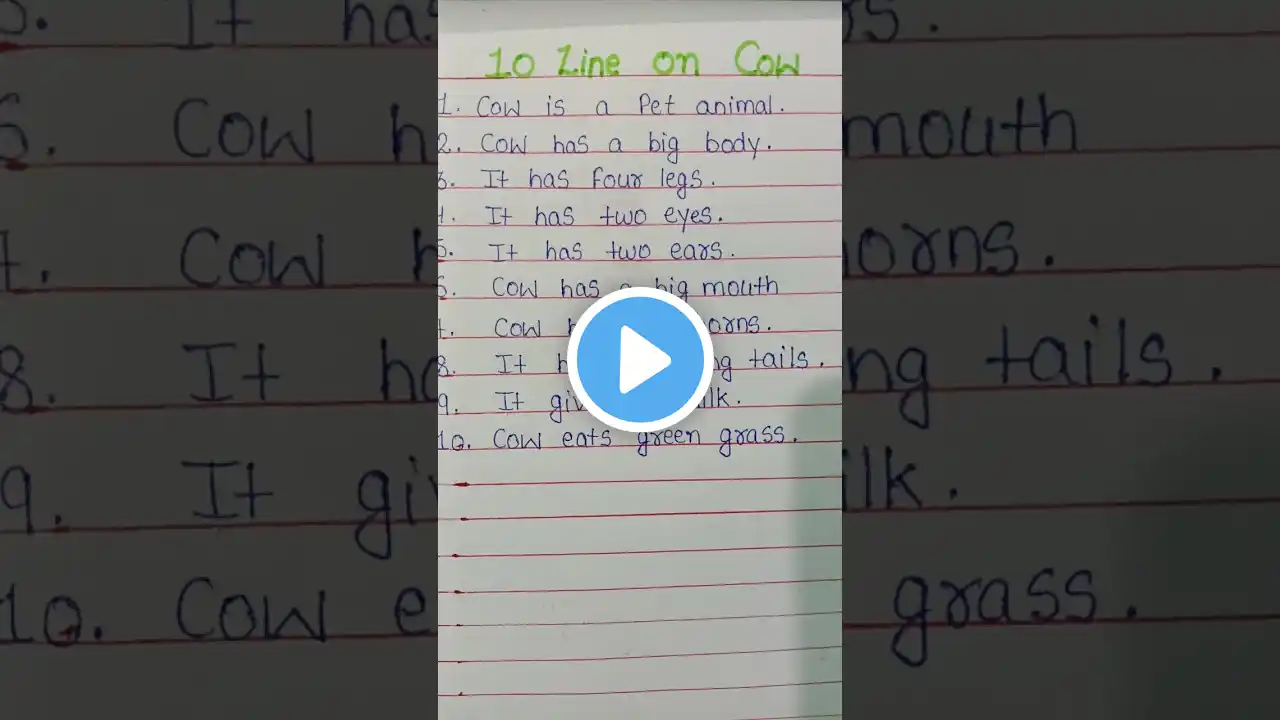 10 Line on Cow
1. Cow is a Pet animal.
2. Cow has a big body.
3. It has four legs.
4. It has two eyes.
5. It has two ears.
6. Cow has a big mouth
7. Cow orns.
8. It ng tails.
9. It giv lk.
10. Cow eats green grass.